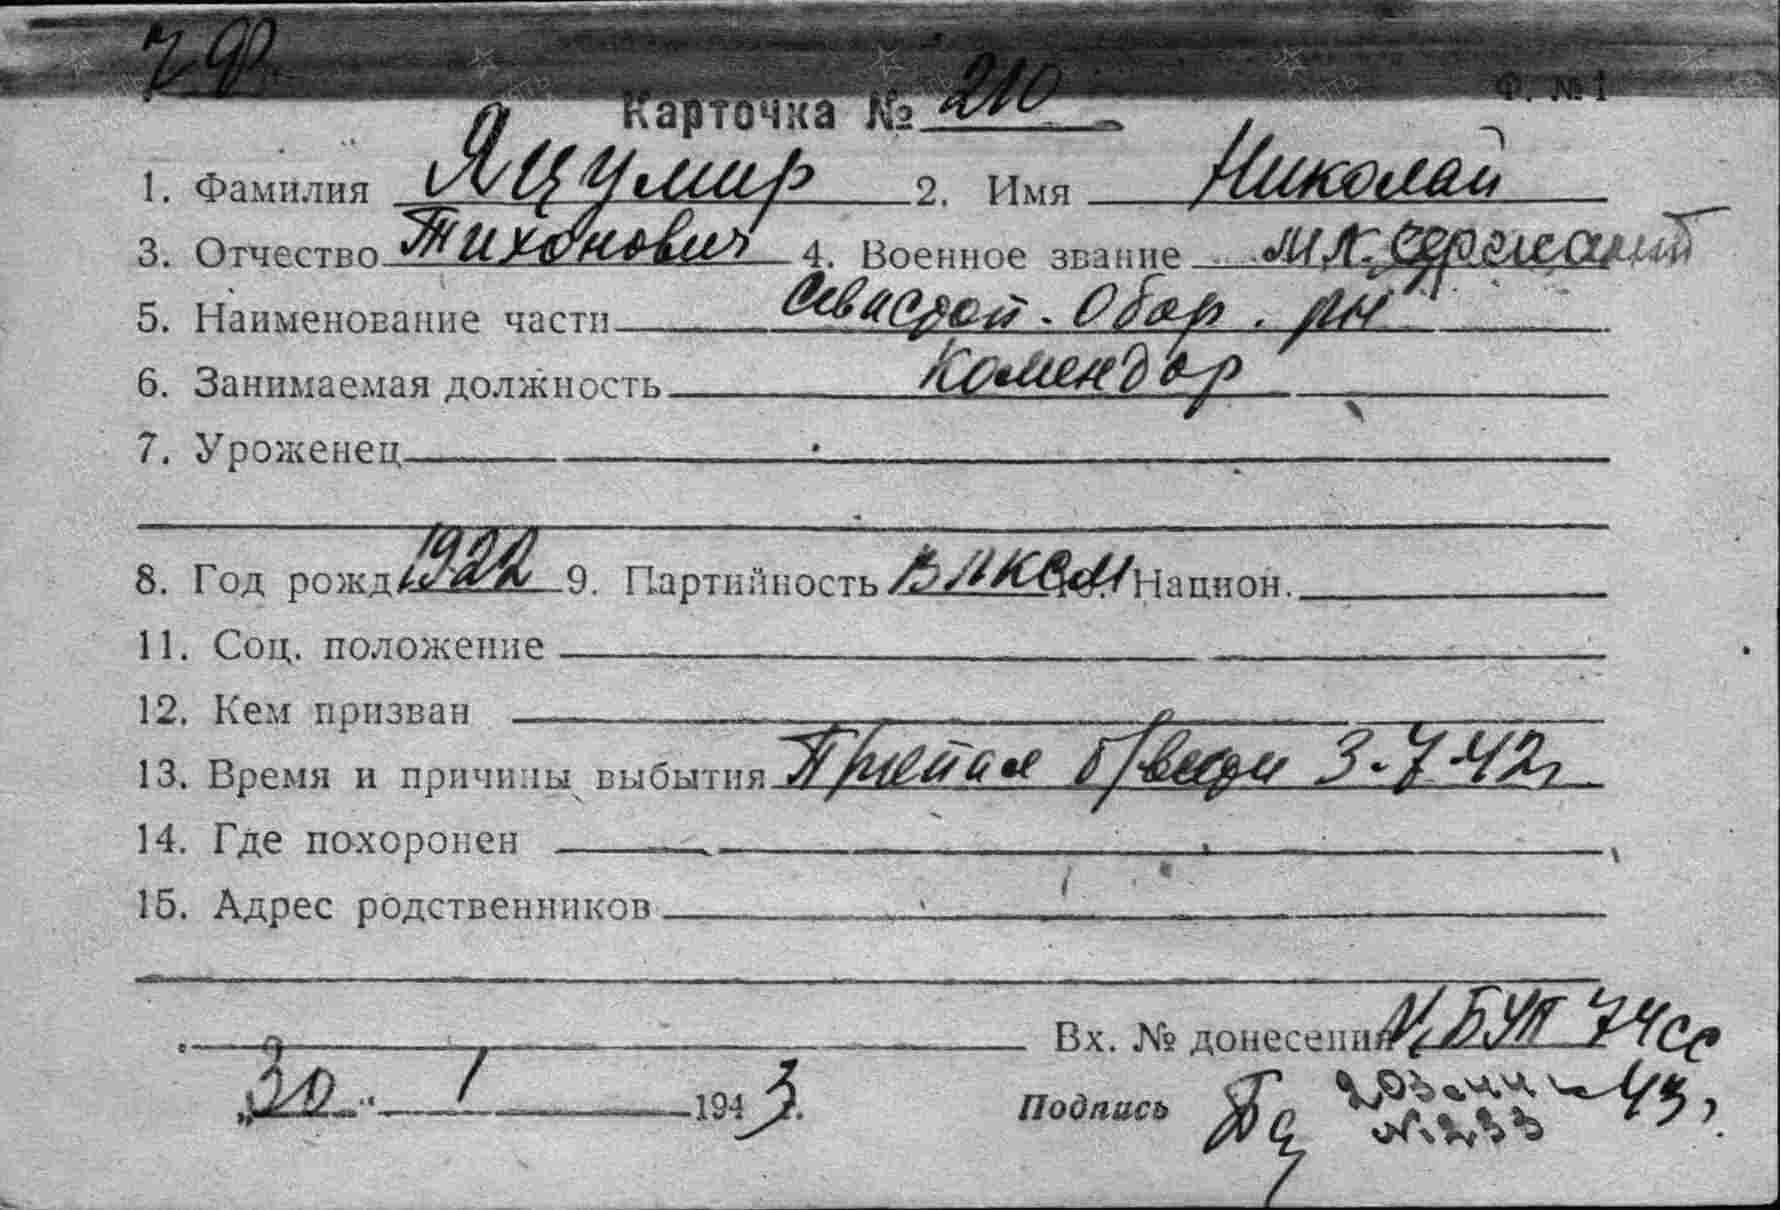 ЧФ.
Ф. №1
Карточка № 210
1. Фамилия Яцумир 2. Имя Николай
3. Отчество Тихонович 4. Военное звание мл. сержант
5. Наименование части Севастоп. Обор. рн
6. Занимаемая должность Комендор
7. Уроженец
8. Год рожд 1922 9. Партийность ВЛКСМ 10. Национ.
11. Соц. положение
12. Кем призван
13. Время и причины выбытия Пропал б/вести 3.7.42г
14. Где похоронен
15. Адрес родственников
Вх. № донесения БУП 74сс
„30“ 1 1943 г. Подпись 43г
№ 233